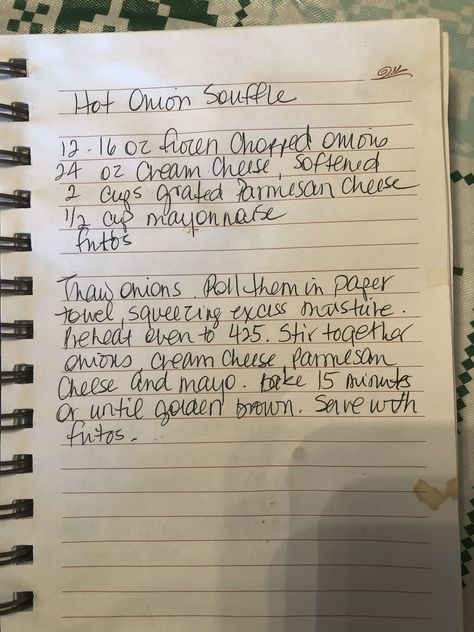 Hot Onion Souffle
12-16 oz frozen chopped onions
24 oz cream cheese, softened
2 cups grated Parmesan cheese
1/2 cup mayonnaise
fritos
Thaw onions. Roll them in paper
towel, squeezing excess moisture.
Preheat oven to 425. Stir together
onions, cream cheese, Parmesan
cheese and mayo. Bake 15 minutes
or until golden brown. Serve with
fritos.